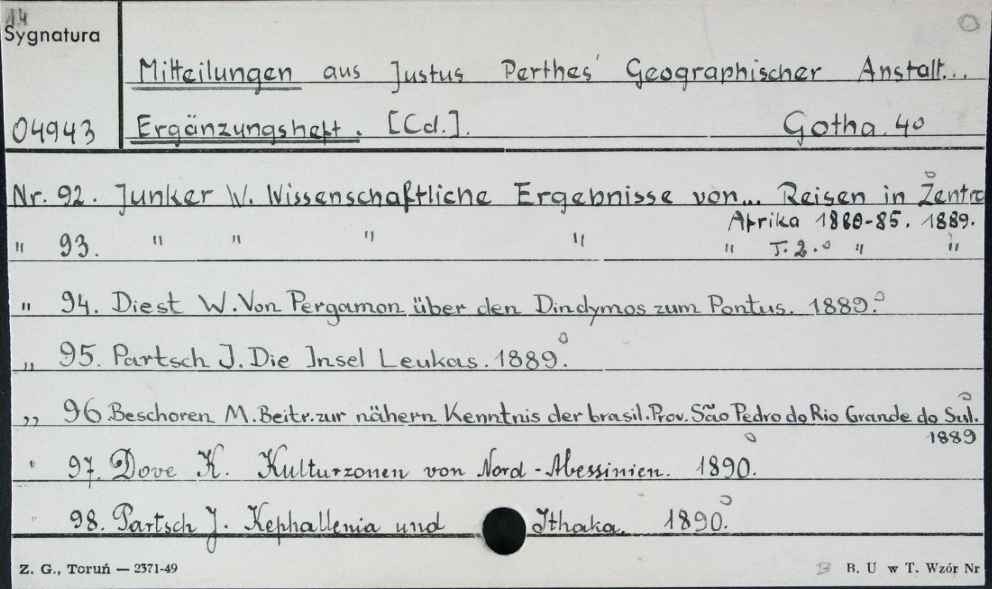 14
Sygnatura
Mitteilungen aus Justus Perthes' Geographischer Anstalt...
04943 Ergänzungsheft. [Cd.]. Gotha. 40
Nr. 92. Junker W. Wissenschaftliche Ergebnisse von... Reisen in Zentr
Afrika 1880-85. 1889.
" 93. " " " " " T. 2. " "
" 94. Diest W. Von Pergamon über den Dindymos zum Pontus. 1889.
" 95. Partsch J. Die Insel Leukas. 1889.
" 96. Beschoren M. Beitr. zur nähern Kenntnis der brasil. Prov. São Pedro do Rio Grande do Sul.
1889
" 97. Dove K. Kulturzonen von Nord-Abessinien. 1890.
98. Partsch J. Kephallenia und Ithaka. 1890.
Z. G., Toruń — 2371-49 B. U w T. Wzór Nr